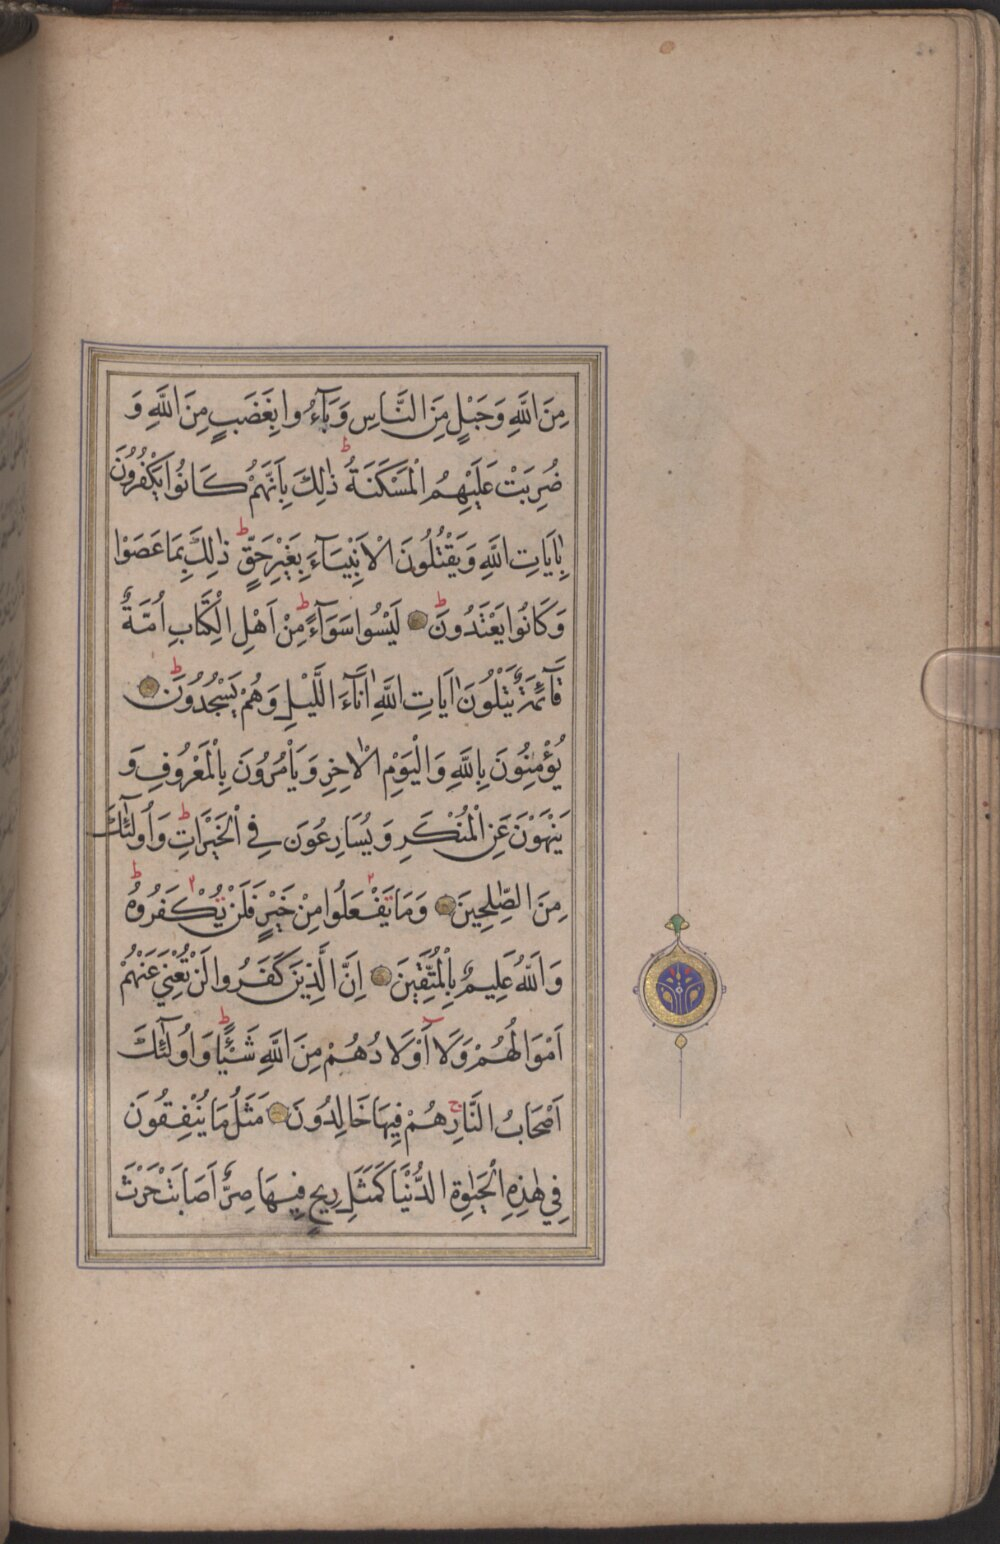 مِنَ اللَّهِ وَحَبْلٍ مِنَ النَّاسِ وَبَآءُوا بِغَضَبٍ مِنَ اللَّهِ وَ
ضُرِبَتْ عَلَيْهِمُ الْمَسْكَنَةُ ط ذٰلِكَ بِاَنَّهُمْ كَانُوا يَكْفُرُونَ
بِاٰيَاتِ اللَّهِ وَيَقْتُلُونَ الْاَنْبِيَآءَ بِغَيْرِ حَقٍّ ط ذٰلِكَ بِمَا عَصَوْا
وَكَانُوا يَعْتَدُونَ ط لَيْسُوا سَوَآءً ط مِنْ اَهْلِ الْكِتَابِ اُمَّةٌ
قَآئِمَةٌ يَتْلُونَ اٰيَاتِ اللَّهِ اٰنَآءَ الَّيْلِ وَهُمْ يَسْجُدُونَ ط
يُؤْمِنُونَ بِاللَّهِ وَالْيَوْمِ الْاٰخِرِ وَيَاْمُرُونَ بِالْمَعْرُوفِ وَ
يَنْهَوْنَ عَنِ الْمُنْكَرِ وَيُسَارِعُونَ فِي الْخَيْرَاتِ ط وَاُولٰٓئِكَ
مِنَ الصّٰلِحِينَ وَمَا يَفْعَلُوا مِنْ خَيْرٍ فَلَنْ يُكْفَرُوهُ ط
وَاللَّهُ عَلِيمٌ بِالْمُتَّقِينَ اِنَّ الَّذِينَ كَفَرُوا لَنْ تُغْنِيَ عَنْهُمْ
اَمْوَالُهُمْ وَلَآ اَوْلَادُهُمْ مِنَ اللَّهِ شَيْئًا ط وَاُولٰٓئِكَ
اَصْحَابُ النَّارِ ج هُمْ فِيهَا خَالِدُونَ مَثَلُ مَا يُنْفِقُونَ
فِي هٰذِهِ الْحَيٰوةِ الدُّنْيَا كَمَثَلِ رِيحٍ فِيهَا صِرٌّ اَصَابَتْ حَرْثَ